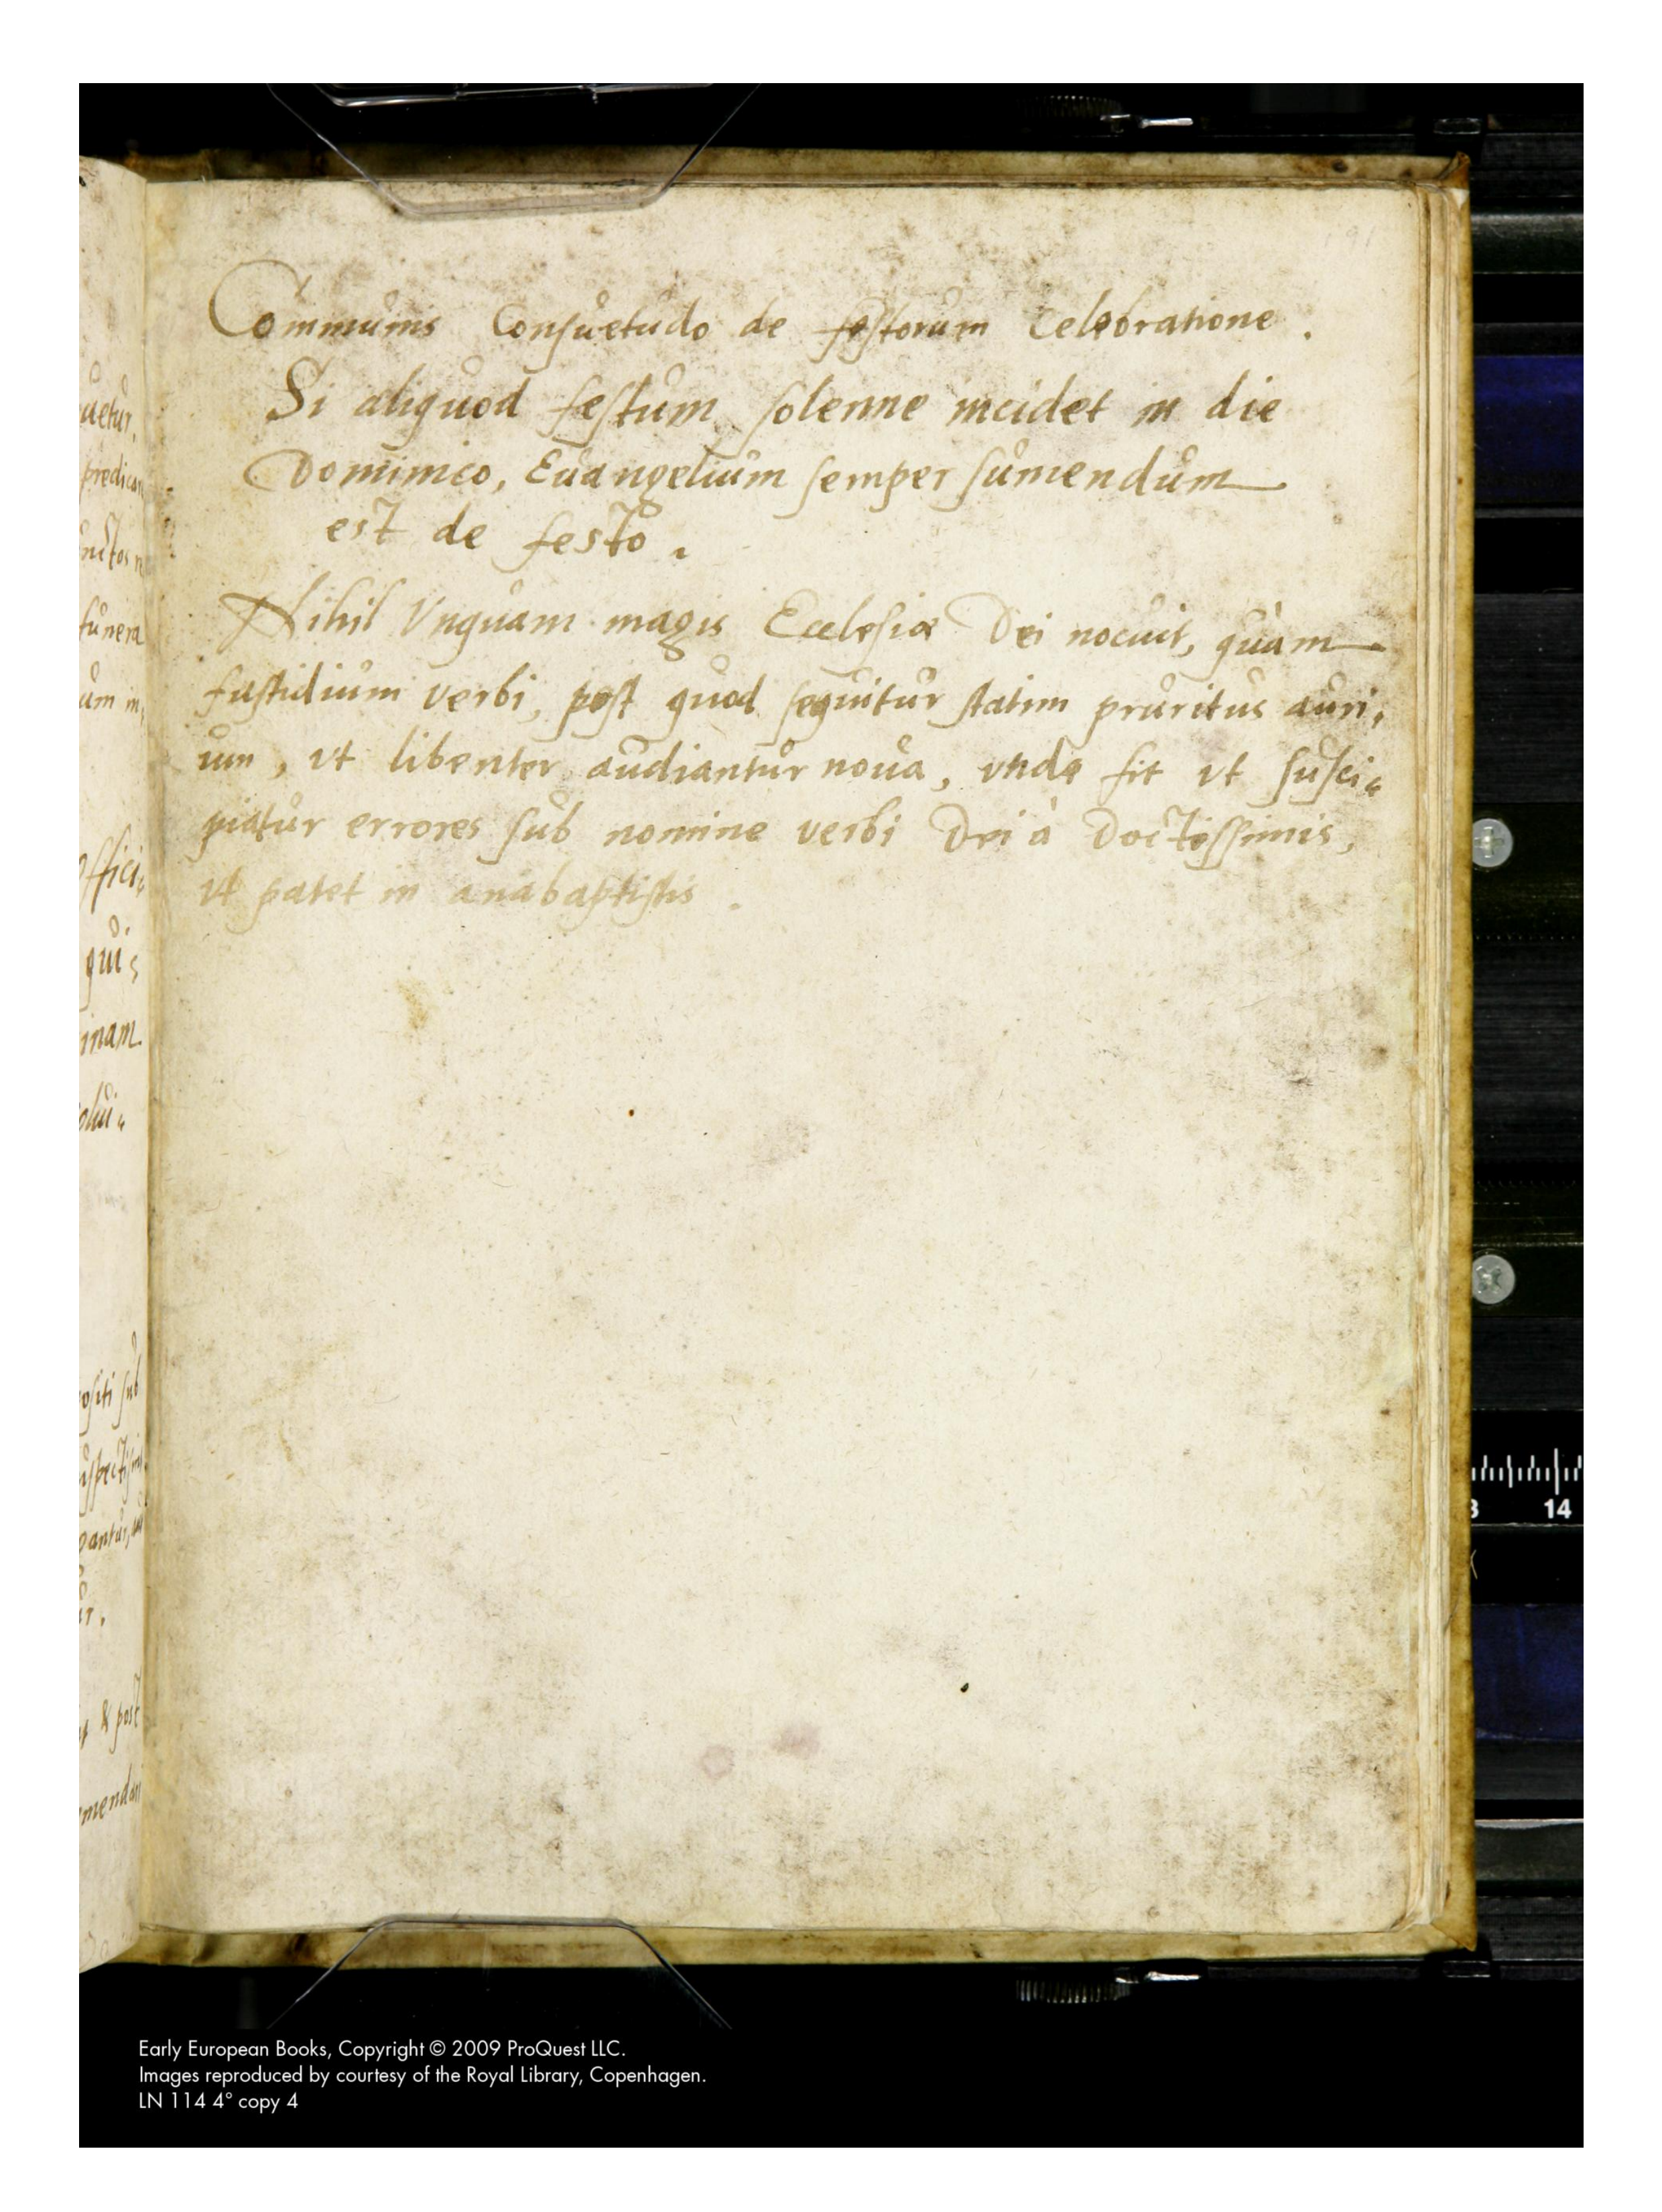 191
Communis Consuetudo de festorum Celebratione.
Si aliquod festum solenne incidet in die
Dominico, Euangelium semper sumendum
est de festo.
Nihil Vnquam magis Ecclesiæ Dei nocuit, quàm
fastidium verbi, post quod sequitur statim pruritus auri,
um, vt libenter audiantur noua, vnde fit vt susci„
piātur errores sub nomine verbi Dei à Doctissimis,
vt patet in anabaptistis.
uetur.
offici„
quis
inam
ositi sub
& post
13 14
Early European Books, Copyright © 2009 ProQuest LLC.
Images reproduced by courtesy of the Royal Library, Copenhagen.
LN 114 4° copy 4